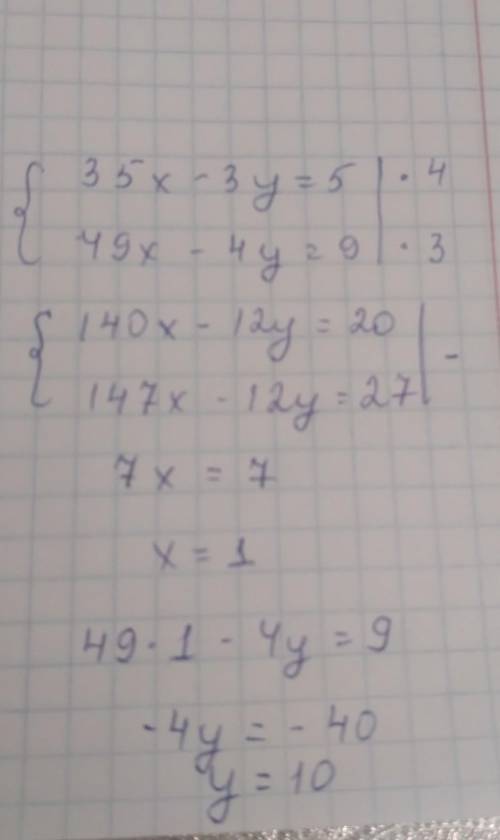 { 35x - 3y = 5 | · 4
49x - 4y = 9 | · 3
{ 140x - 12y = 20 | -
147x - 12y = 27
7x = 7
x = 1
49 · 1 - 4y = 9
-4y = - 40
y = 10